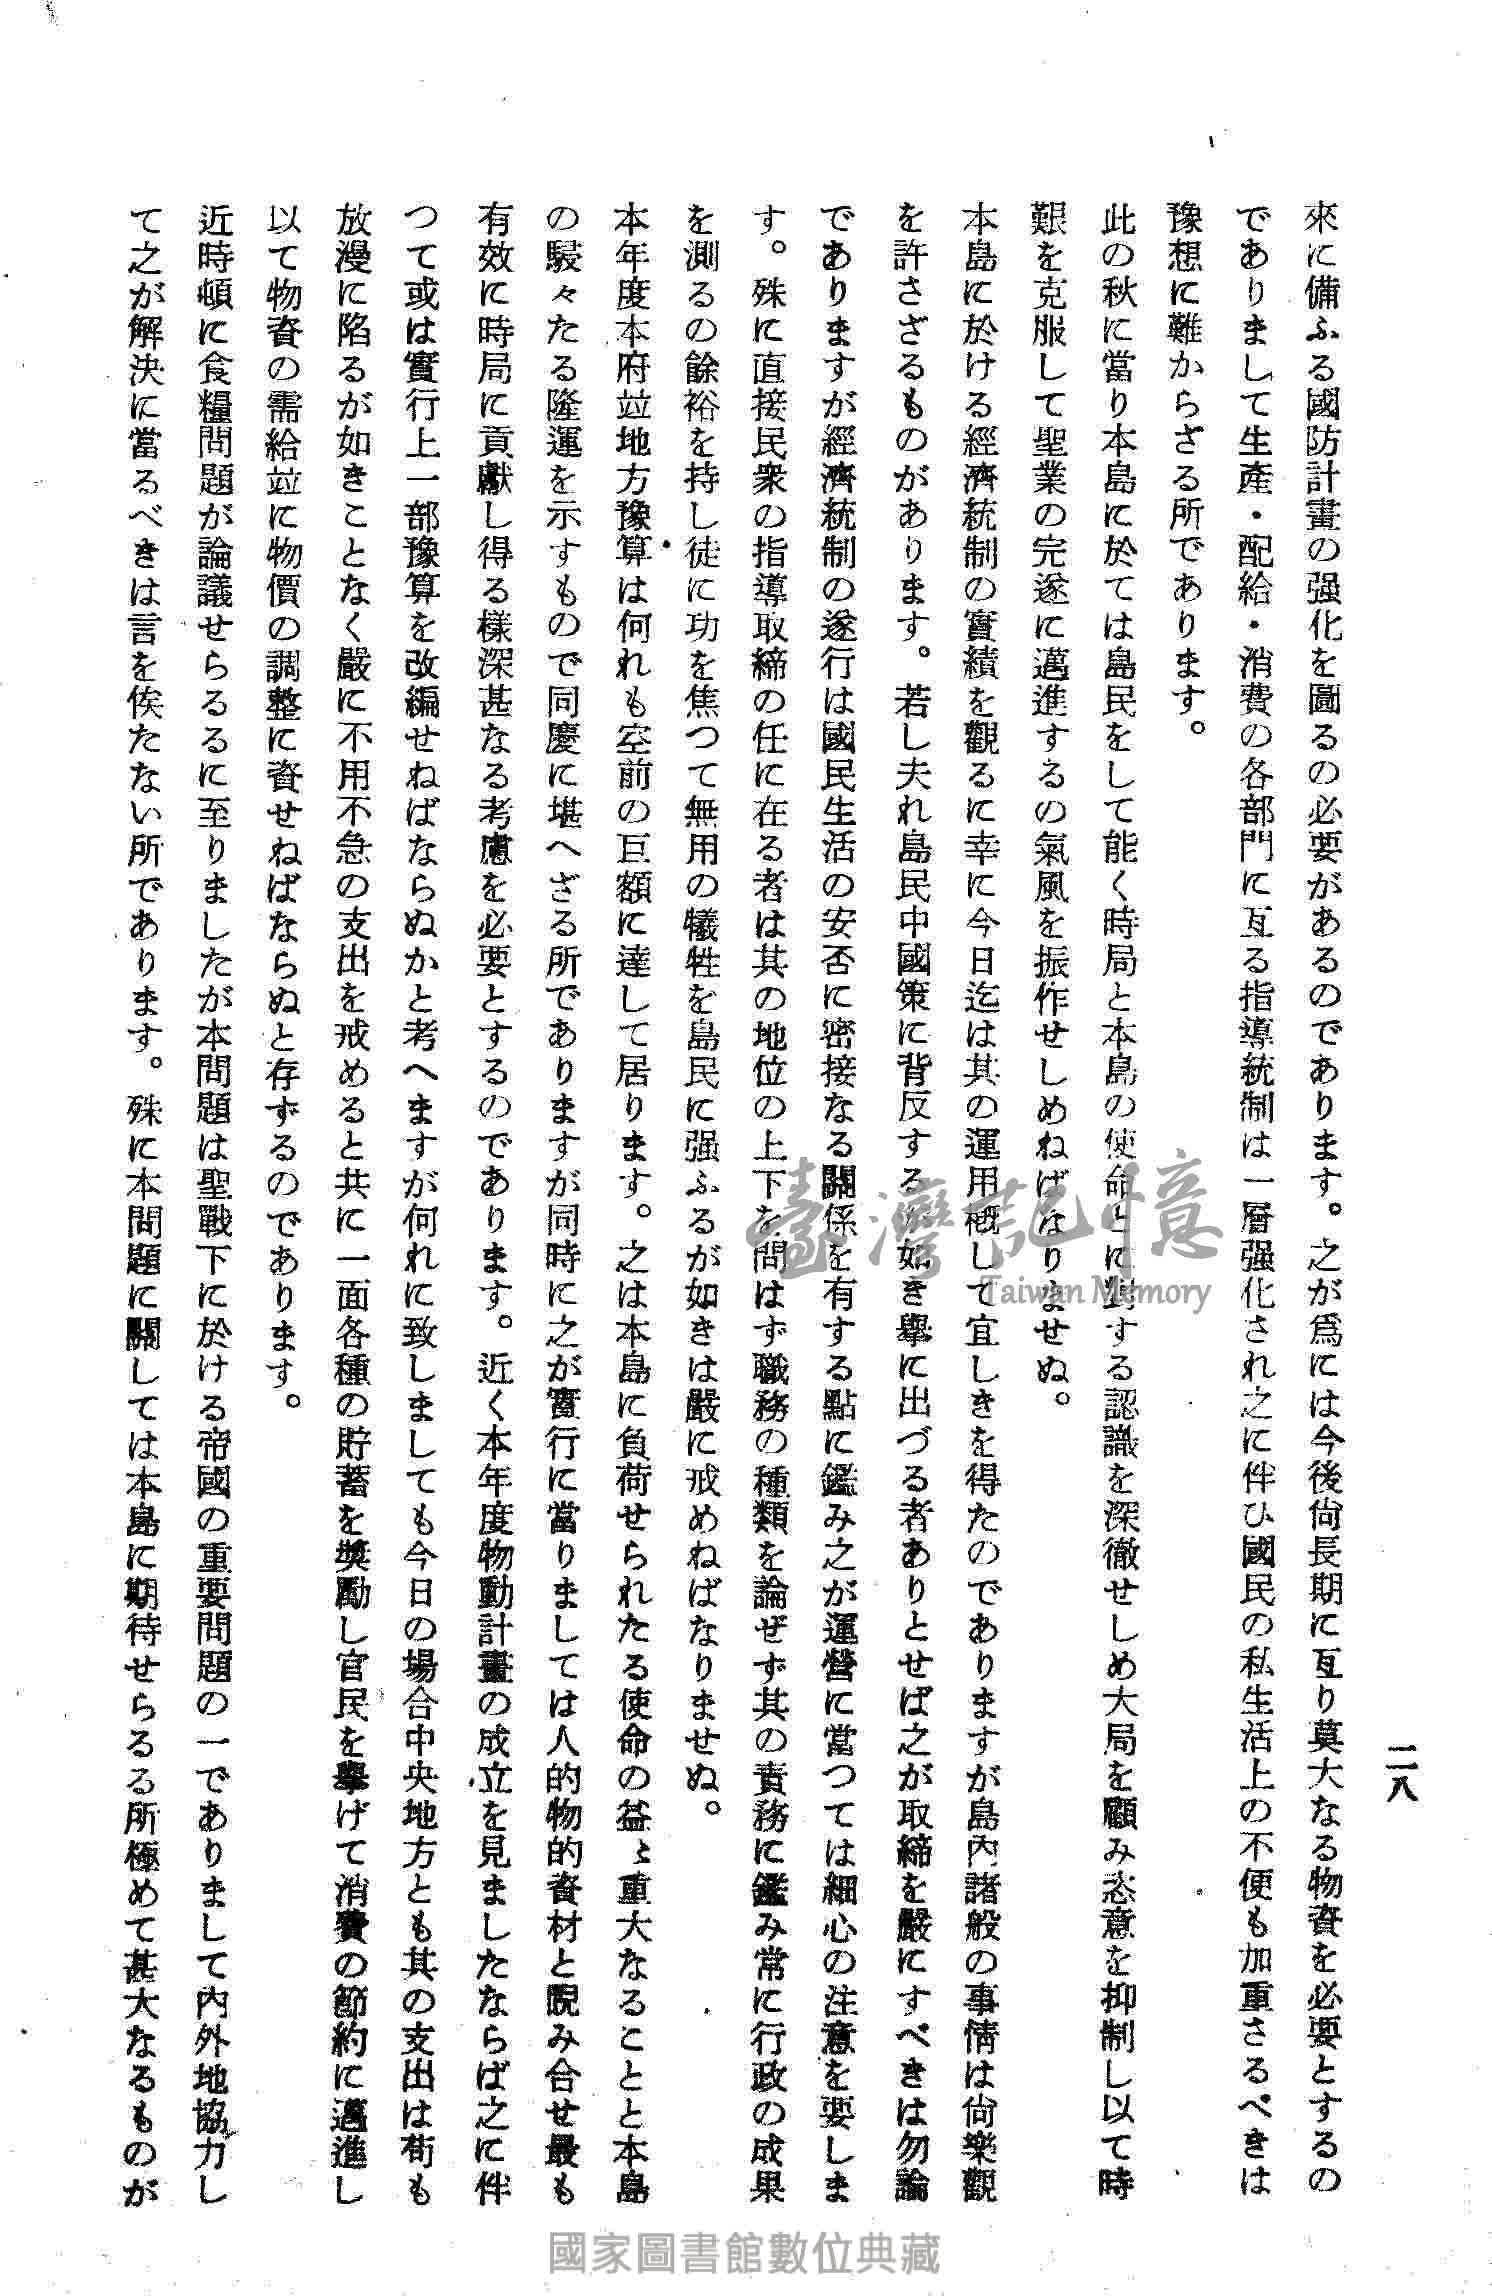 二八
來に備ふる國防計畫の强化を圖るの必要があるのであります。之が爲には今後尙長期に亙り莫大なる物資を必要とするの
でありまして生產・配給・消費の各部門に亙る指導統制は一層强化され之に伴ひ國民の私生活上の不便も加重さるべきは
豫想に難からざる所であります。
此の秋に當り本島に於ては島民をして能く時局と本島の使命とに對する認識を深徹せしめ大局を顧み恣意を抑制し以て時
艱を克服して聖業の完遂に邁進するの氣風を振作せしめねばなりませぬ。
本島に於ける經濟統制の實績を觀るに幸に今日迄は其の運用概して宜しきを得たのでありますが島內諸般の事情は尙樂觀
を許さざるものがあります。若し夫れ島民中國策に背反するが如き擧に出づる者ありとせば之が取締を嚴にすべきは勿論
でありますが經濟統制の遂行は國民生活の安否に密接なる關係を有する點に鑑み之が運營に當つては細心の注意を要しま
す。殊に直接民衆の指導取締の任に在る者は其の地位の上下を問はず職務の種類を論ぜず其の責務に鑑み常に行政の成果
を測るの餘裕を持し徒に功を焦つて無用の犧牲を島民に强ふるが如きは嚴に戒めねばなりませぬ。
本年度本府竝地方豫算は何れも空前の巨額に達して居ります。之は本島に負荷せられたる使命の益〻重大なることと本島
の駸々たる隆運を示すもので同慶に堪へざる所でありますが同時に之が實行に當りましては人的物的資材と睨み合せ最も
有效に時局に貢獻し得る樣深甚なる考慮を必要とするのであります。近く本年度物動計畫の成立を見ましたならば之に伴
つて或は實行上一部豫算を改編せねばならぬかと考へますが何れに致しましても今日の場合中央地方とも其の支出は苟も
放漫に陷るが如きことなく嚴に不用不急の支出を戒めると共に一面各種の貯蓄を奬勵し官民を擧げて消費の節約に邁進し
以て物資の需給竝に物價の調整に資せねばならぬと存ずるのであります。
近時頓に食糧問題が論議せらるるに至りましたが本問題は聖戰下に於ける帝國の重要問題の一でありまして內外地協力し
て之が解決に當るべきは言を俟たない所であります。殊に本問題に關しては本島に期待せらるる所極めて甚大なるものが
臺灣記憶
Taiwan Memory
國家圖書館數位典藏